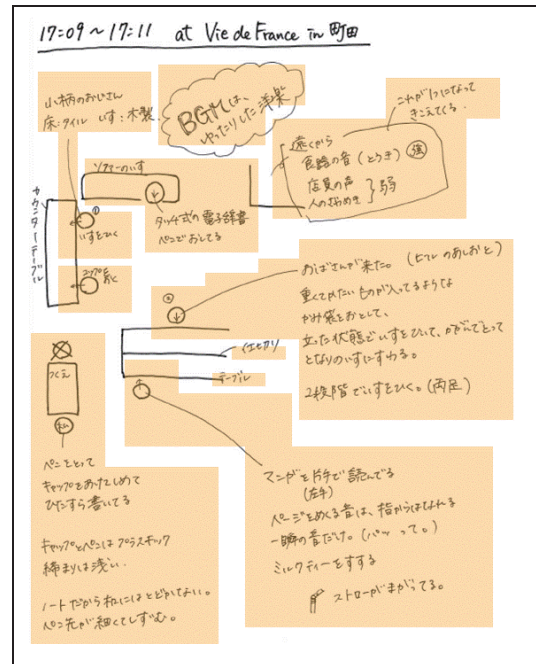 17:09〜17:11 at Vie de France in 町田
小柄のおじさん
床:タイル いす:木製
BGMは、
ゆったりした洋楽
これが1つになって
きこえてくる.
遠くから
食器の音(とうき) 強
店員の声
人のざわめき 弱
ソファーのいす
タッチ式の電子辞書
ペンでおしてる
カウンターテーブル
①
いすをひく
コップを
おく
おばさんが来た。(ヒールのあしおと)
重くてかたいものが入ってるような
かみ袋をおとして、
立った状態でいすをひいて、かがんでとって
となりのいすにすわる。
2段階でいすをひく。(両足)
②
テーブル
つくえ
私
ペンをとって
キャップをあけたしめて
ひたすら書いてる
キャップとペンはプラスチック
締まりは浅い
ノートだから私にはとどかない。
ペン先が細くてしずむ。
マンガを片手で読んでる
(左手)
ページをめくる音は、指からはなれる
一瞬の音だけ。(パッって。)
ミルクティーをすする
ストローがまがってる。